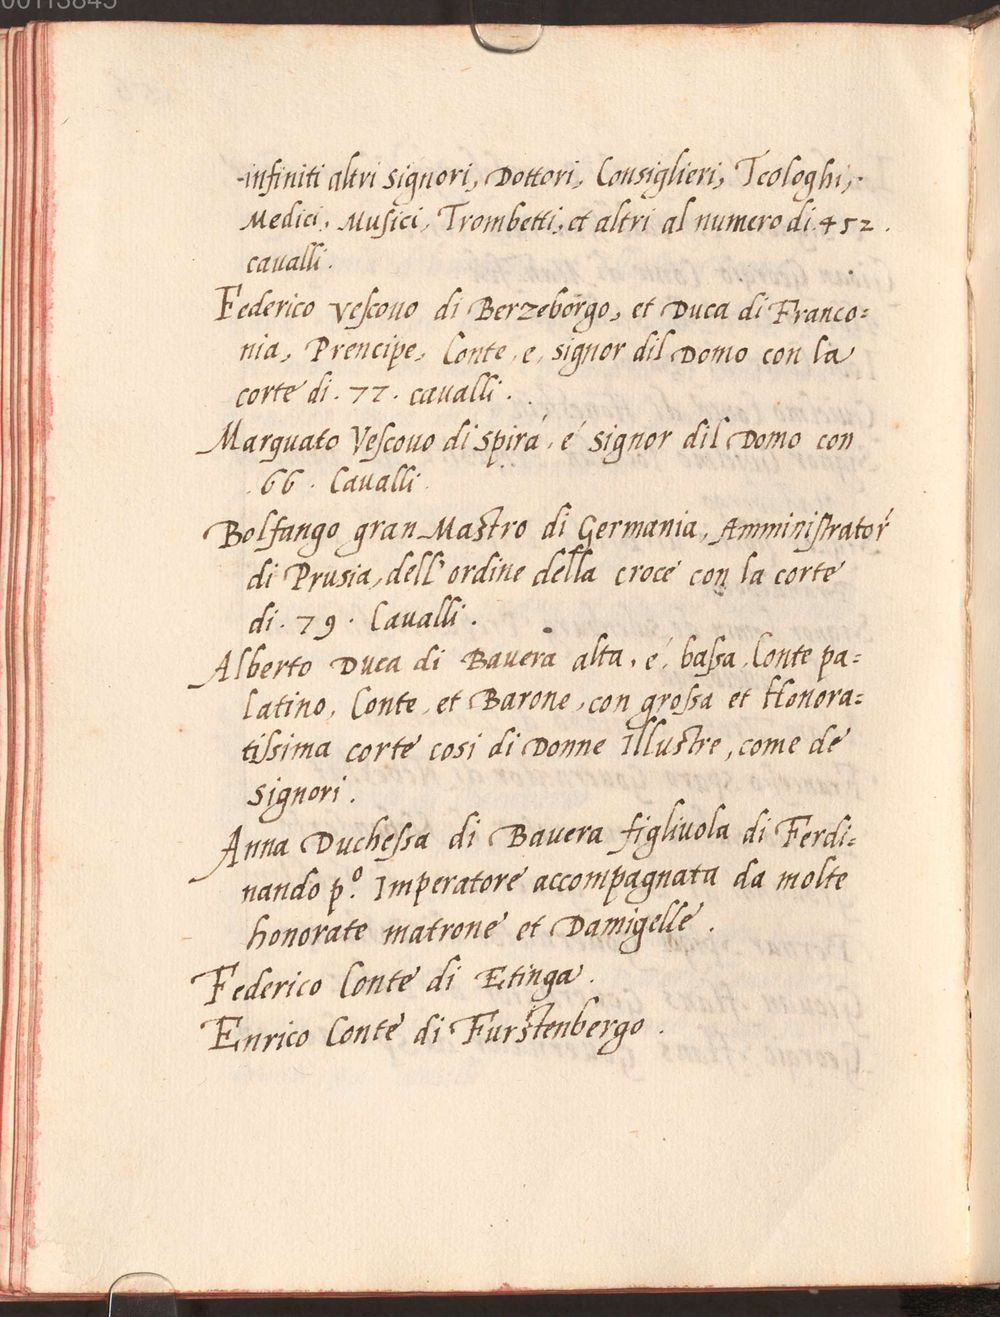 00113845
infiniti altri signori, Dottori, Consiglieri, Teologhi,
Medici, Musici, Trombetti, et altri al numero di 452.
cavalli.
Federico vescovo di Berzeborgo, et Duca di Franco=
nia, Prencipe, Conte, e, signor dil Domo con la
corte di. 77. cavalli.
Marquato Vescovo di Spira, é signor dil Domo con
.66. Cavalli.
Bolfango gran Mastro di Germania, Amministrator
di Prusia, dell' ordine della croce con la corte
di. 79. Cavalli.
Alberto Duca di Bauera alta, é, bassa, Conte pa=
latino, Conte, et Barone, con grossa et Honora=
tissima corte cosi di Donne Illustre, come de
signori.
Anna Duchessa di Bauera figliuola di Ferdi=
nando p.º Imperatore accompagnata da molte
honorate matrone et Damigelle.
Federico Conte di Etinga.
Enrico Conte di Furstenbergo.